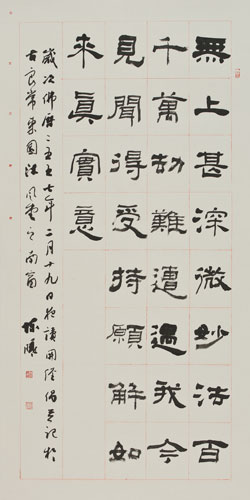 無上甚深微妙法百
千萬劫難遭遇我今
見聞得受持願解如
來真實意
歲次佛曆二五五七年二月十九日夜讀開經偈並記於
古良常栗園法風堂之南窗